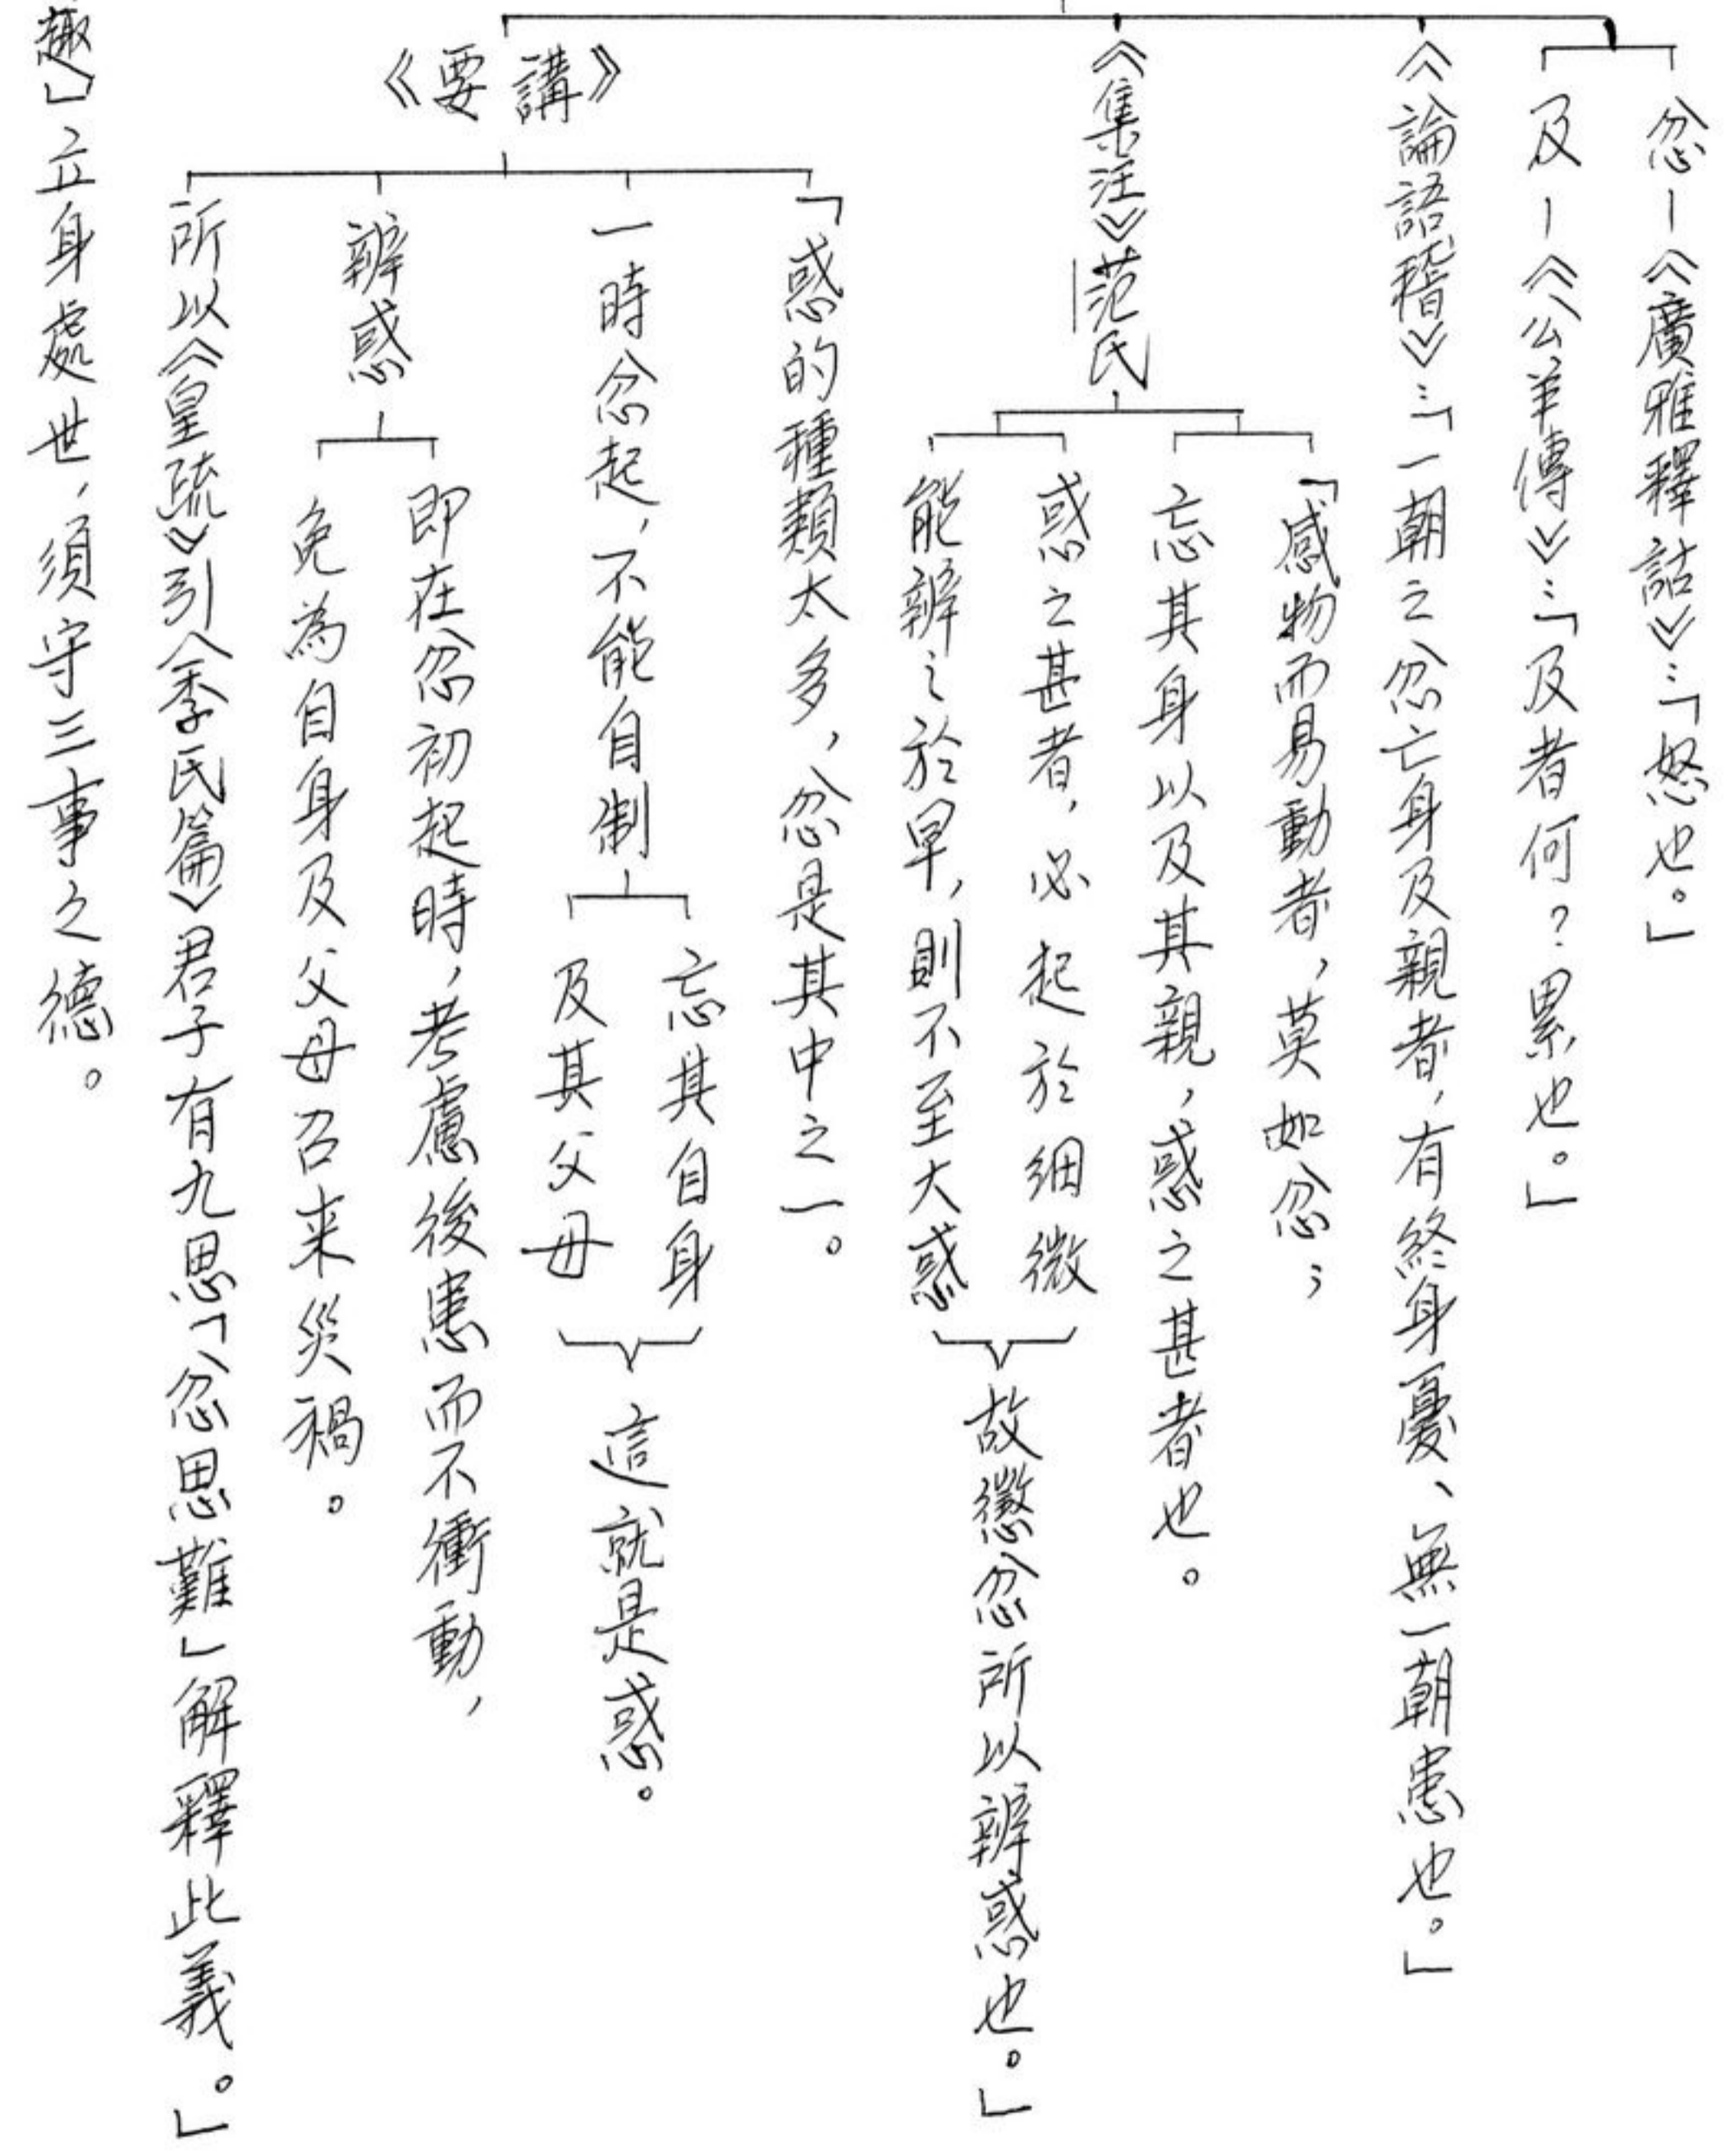 忿-《廣雅釋詁》:「怒也。」
及-《公羊傳》:「及者何？累也。」
《論語稽》:「一朝之忿亡身及親者，有終身憂、無一朝患也。」
《集注》范氏
「感物而易動者，莫如忿；
忘其身以及其親，惑之甚者也。
惑之甚者，必起於細微
能辨之於早，則不至大惑
故懲忿所以辨惑也。」
《要講》
「惑的種類太多，忿是其中之一。
一時忿起，不能自制
忘其自身
及其父母
這就是惑。
辨惑
即在忿初起時，考慮後患而不衝動，
免為自身及父母召来災禍。
所以《皇疏》引《季氏篇》君子有九思「忿思難」解釋此義。」
趣」立身處世，須守三事之德。